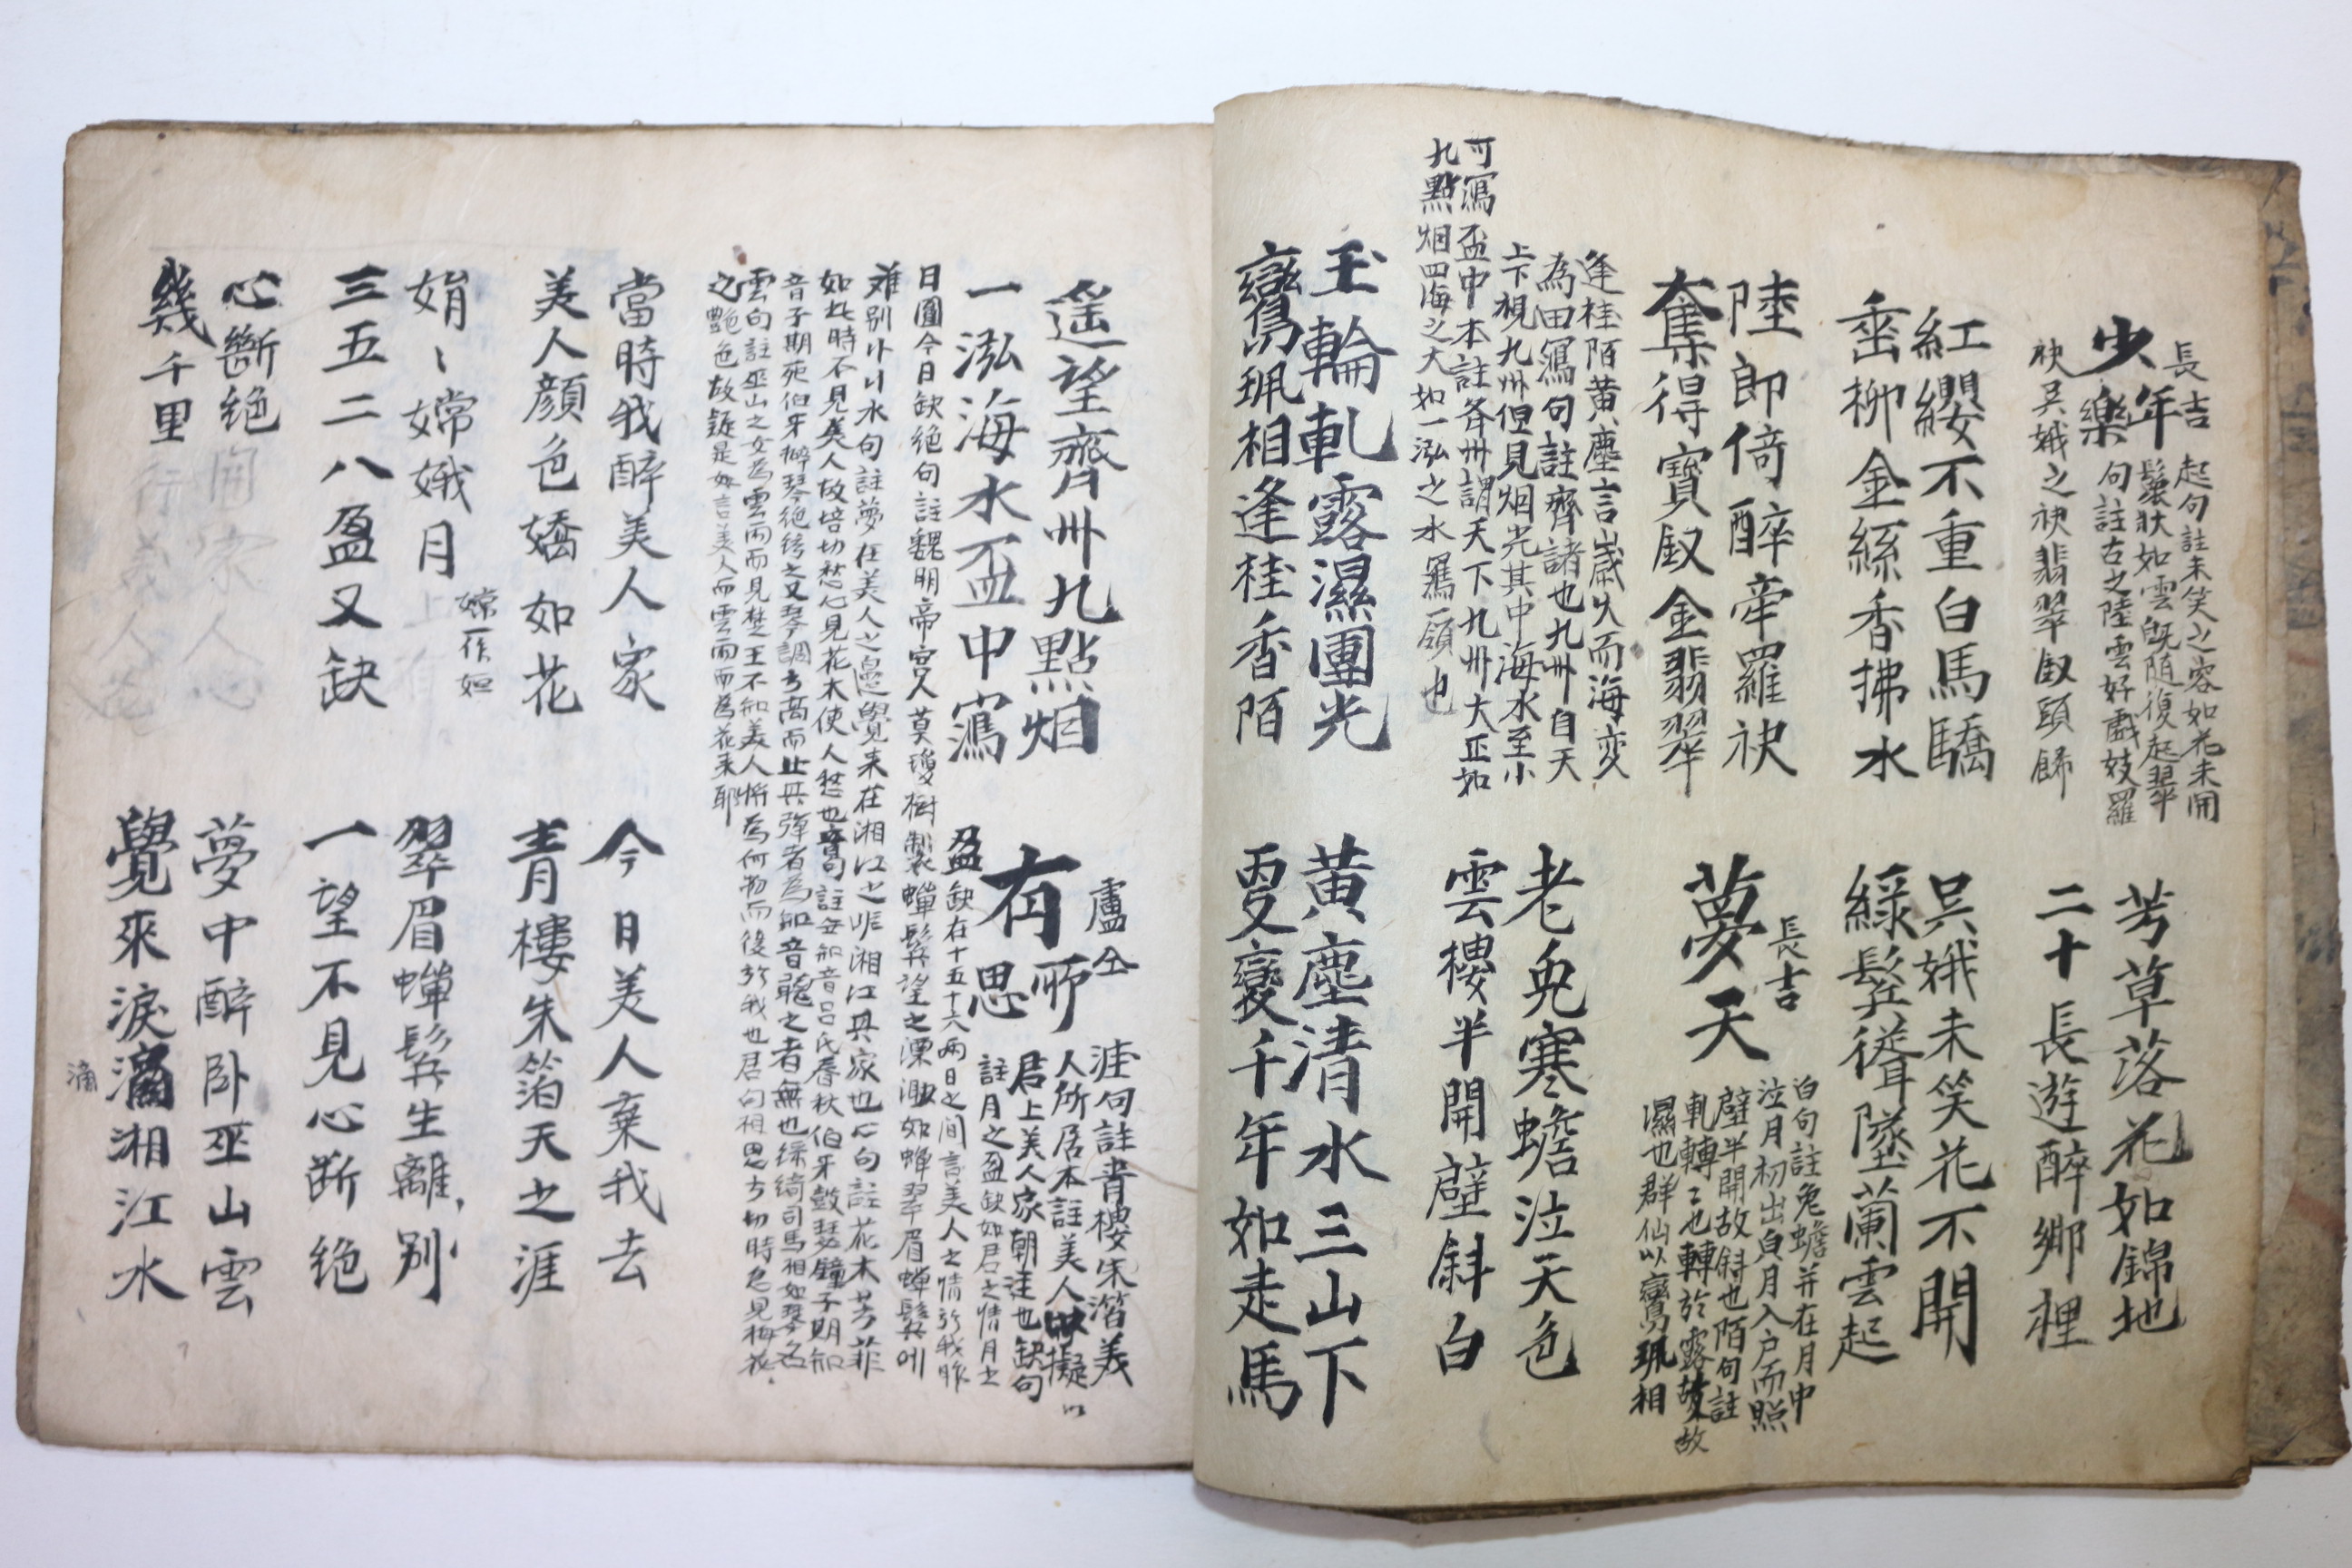 長吉
少年樂
起句註未笑之容如花未開
鬟狀如雲旣随復起翠
句註古之陸雲好戲妓羅
袂吳娥之袂翡翠釵頭餙
芳草落花如錦地
二十長遊醉鄉裡
紅纓不重白馬驕
垂柳金絲香拂水
吳娥未笑花不開
綠鬢聳墮蘭雲起
陸郎倚醉牽羅袂
奪得寶釵金翡翠
長吉
夢天
白句註兔蟾并在月中
泣月初出貞月入户而照
壁半開故斜也陌句註
軋轉〻也轉於露故故
濕也群仙以鸞珮相
逢桂陌黃塵言歲久而海变
為田瀉句註齊諸也九州自天
上下視九州但見烟光其中海水至小
可瀉盃中本註各州謂天下九州大正如
九點烟四海之大如一泓之水瀉領也
老兔寒蟾泣天色
雲樓半開壁斜白
玉輪軋露濕團光
鸞珮相逢桂香陌
黃塵清水三山下
更變千年如走馬
遥望齊州九點烟
一泓海水盃中瀉
盧仝
有所思
涯句註青樓朱箔美
人所居本註美人擬以
居上美人家朝達也缺句
註月之盈缺如君之情月之
盈缺在十五十六兩日之间言美人之情於我昨
日圓今日缺絶句註魏明帝宮人莫瓊樹製蟬鬂望之漂渺如蟬翠眉蟬鬂
难别水句註夢在美人之邊覺来在湘江之非湘江其家也心句註花木芳菲
如此時不見美人故培切愁心見花木使人愁也音句註無知音呂氏春秋伯牙鼓琴鐘子期知
音子期死伯牙擗琴絶絃之又琴調方高而止其弹者為知音聴之者無也綠綺司馬相如琴名
雲句註巫山之女為雲雨而見楚王不知美人將為何物而後於我也君句相思方切時忽見梅花
之艷色故疑是如言美人而雲雨而為花来耶
當時我醉美人家
美人顔色嬌如花
今日美人棄我去
青樓朱箔天之涯
娟〻嫦娥月
嫦一作姮
三五二八盈又缺
翠眉蟬鬂生離别
一望不見心断絶
心斷絶
幾千里
夢中醉卧巫山雲
覺來淚滴湘江水
滴